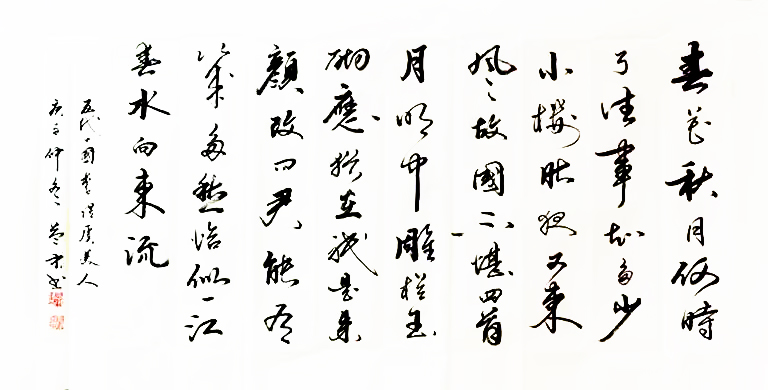 春花秋月何時
了往事知多少
小樓昨夜又東
風故國不堪回首
月明中雕欄玉
砌應猶在祇是朱
顏改問君能有
幾多愁恰似一江
春水向東流
五代南唐李煜虞美人
庚子仲冬